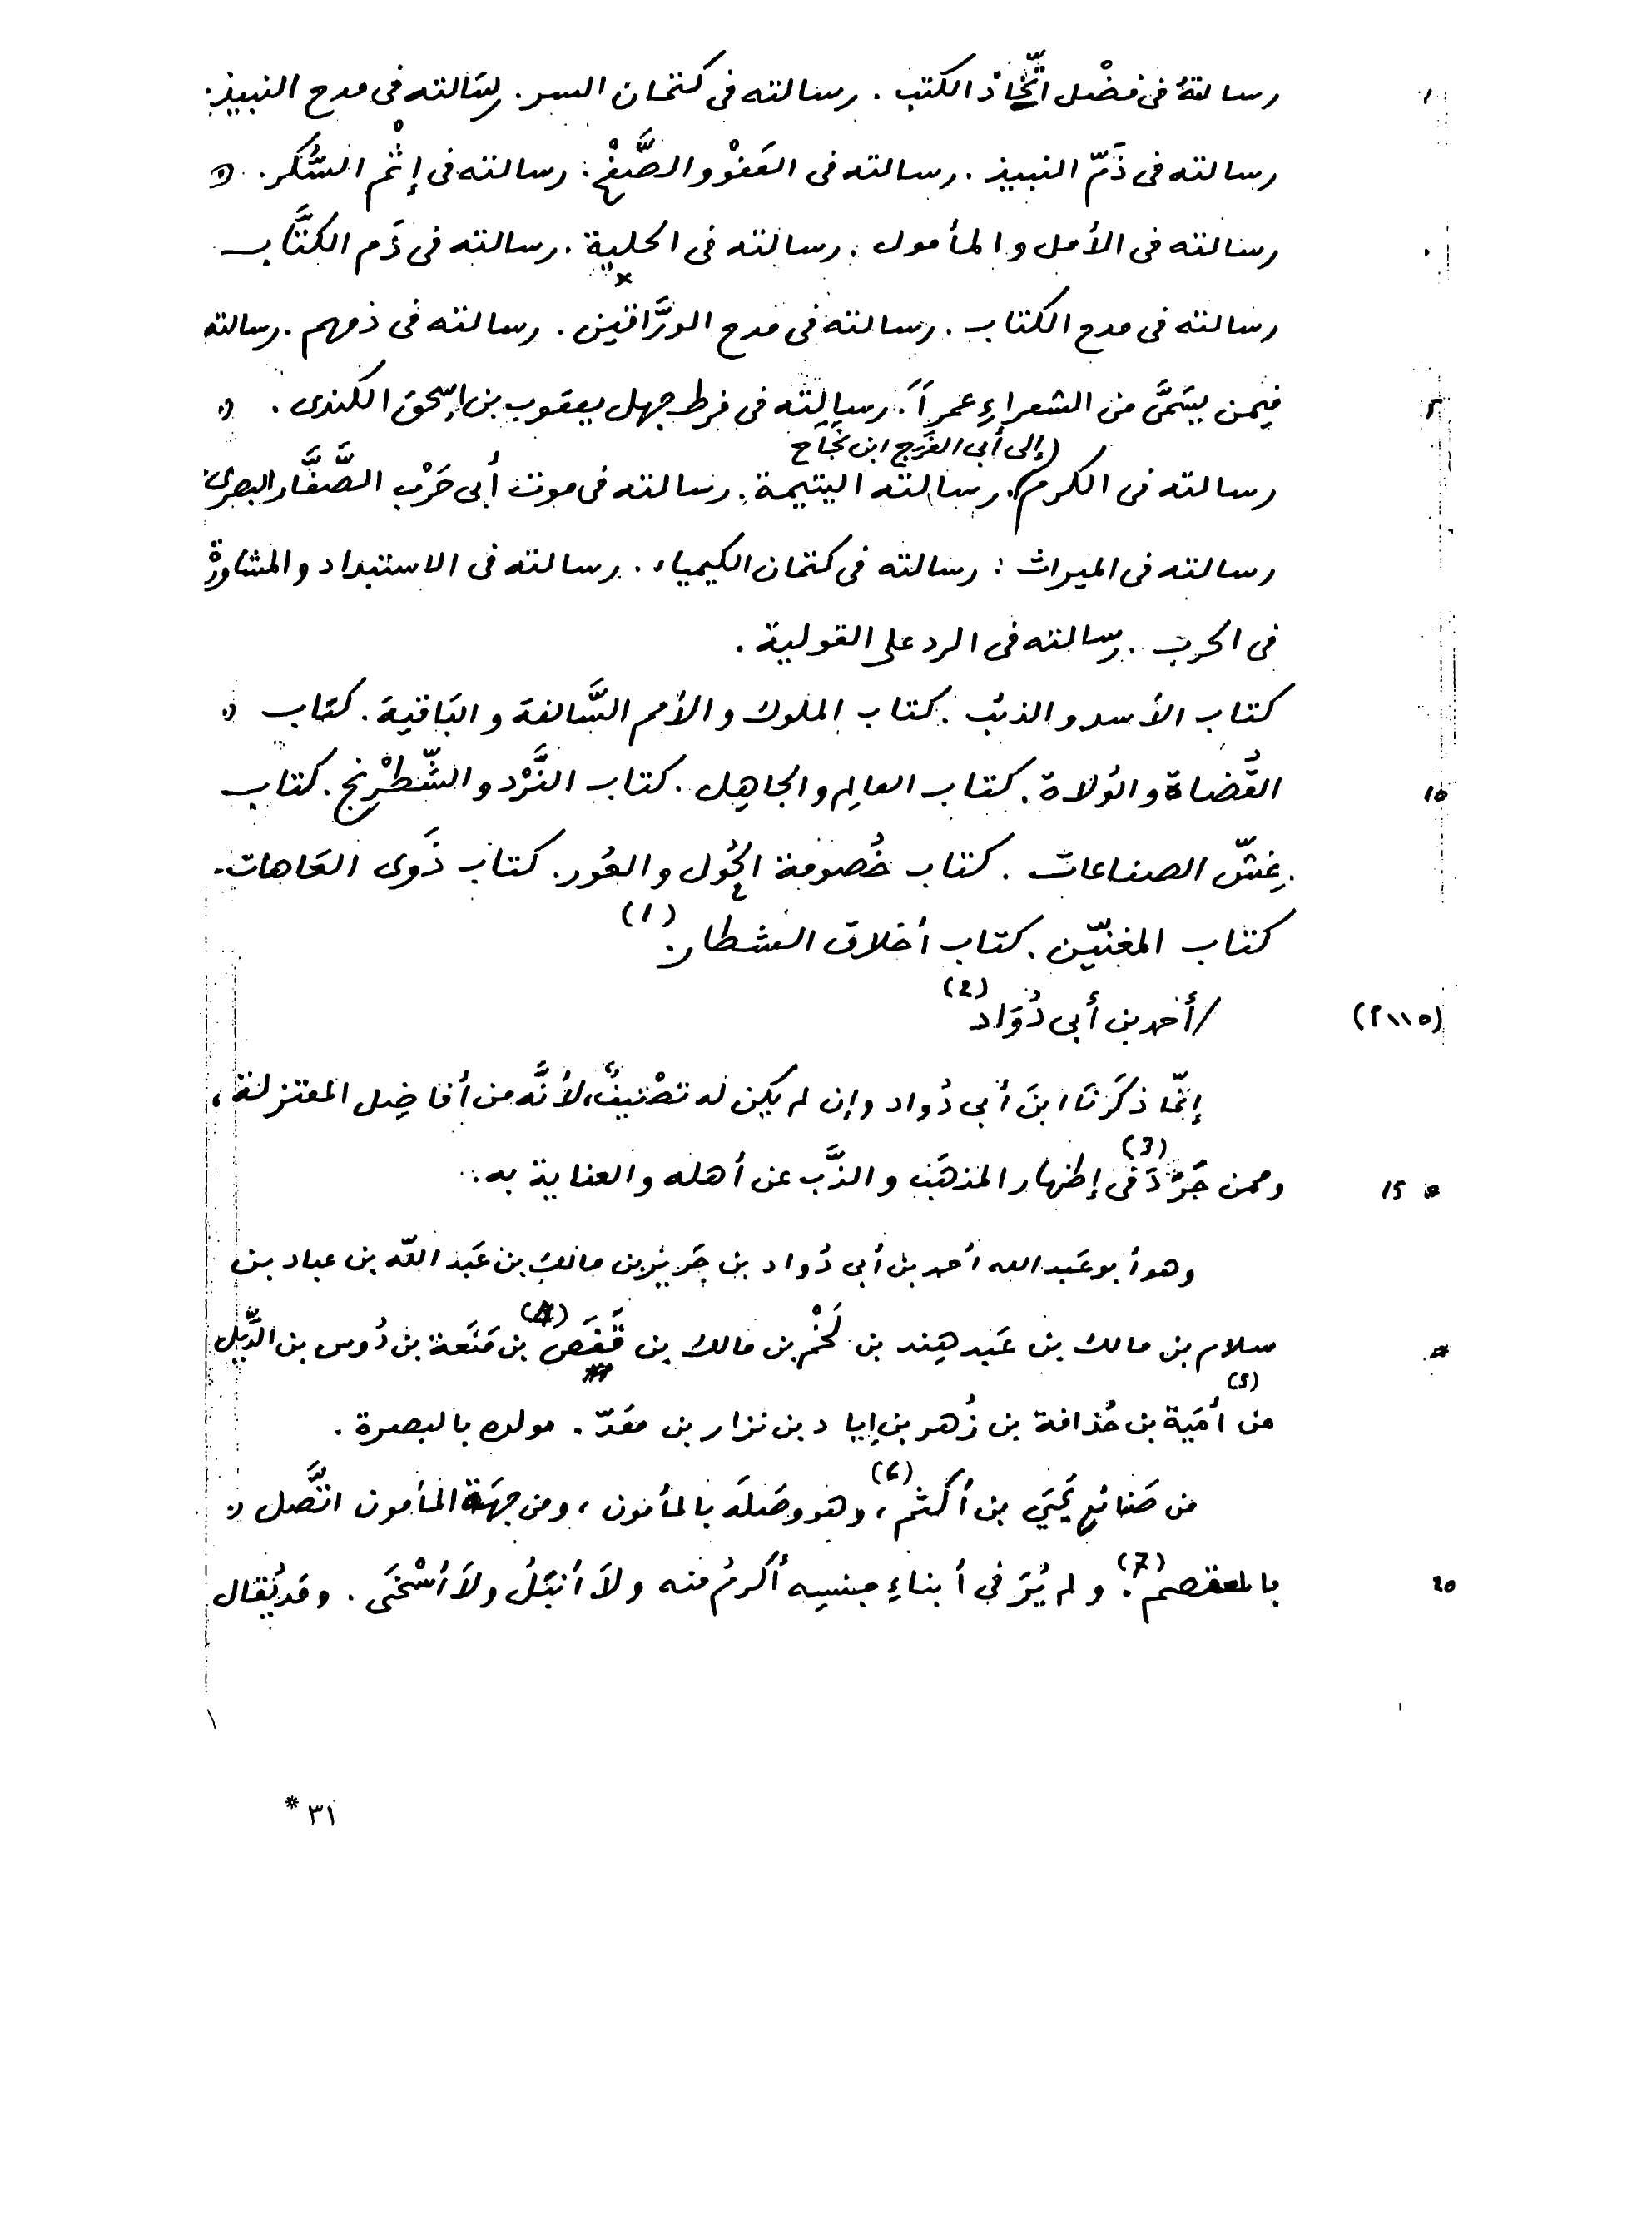 رسالتهُ فى فضْل اتّخاذ الكتب . رسالته فى كتمان السر . رسَالته فى مدح النبيذ .
رسالته فى ذَمّ النبيذ . رسالته فى العَفْو والصَّفْح . رسالته فى إثْم السُّكر .
رسالته فى الأمل والمأمول . رسالته فى الحلية . رسالته فى ذَم الكتَّاب
رسالته فى مدح الكتاب . رسالته فى مدح الورَّاقين . رسالته فى ذمهم . رسالته
فيمن يسَمَّى من الشعراءِ عمراً . رسالته فى فرط جهل يعقوب بن إسحق الكندى .
(إلى أبى الفَرَج ابن نَجَاح
رسالته فى الكرم . رسالته اليتيمة . رسالته فى موت أبى حَرْب الصَّفَّار البصرى
رسالته فى الميراث : رسالته فى كتمان الكيمياء . رسالته فى الاستبداد والمشاورة
فى الحرب . رسالته فى الرد على القولية .
كتاب الأسد والذئب . كتاب الملوك والأمم السَّالفة والبَاقية . كتاب
10 القُضاة والوُلاة . كتاب العالِم والجاهِل . كتاب النَّرْد والشِّطرْنج . كتاب
غِشّ الصناعات . كتاب خُصومة الحُول والعُور . كتاب ذَوى العَاهات .
كتاب المغنيّين . كتاب أخلاق الشطار . (1)
(١١٥م) /أحمد بن أبى دُوَاد (2)
إنّما ذكَرنَا ابنَ أبى دُواد وإن لم يكن له تصْنيفٌ، لأنَّه من أفاضِل المعتزلة ،
15 وممن جَرَّدَ (3) فى إظهار المذهَب والذَّب عن أهله والعناية به .
وهو أبو عَبد الله أحمد بن أبى دُواد بن جَرير بن مالك بن عَبد اللّه بن عباد بن
سلام بن مالك بن عَبد هِند بن لَخْم بن مالك بن قَفَص (4) بن مَنَعة بن دُوس بن الدِّيل
من (5) أمَية بن حُذافة بن زُهر بن إياد بن نزار بن معَدّ . مولده بالبصرة .
من صَنائع يَحيَى بن أكثم (6) ، وهو وصَله بالمأمون ، ومن جهَة المأمون اتَّصل
20 بالمعتصم (7) . ولم يُرَ فى أبناءِ جنسِه أكرمُ منه ولاَ أنبَلُ ولاَ أسْخَى . وقد يُقال
٣١ *